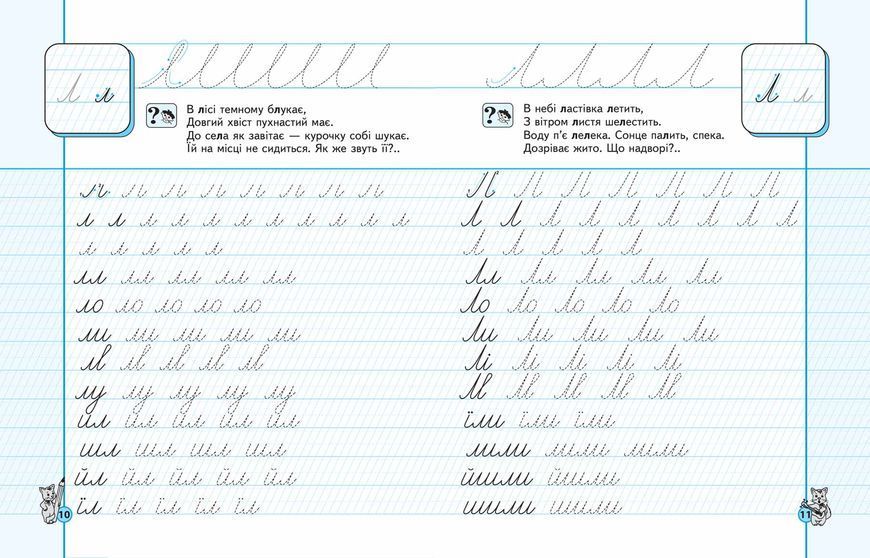 Л л
В лісі темному блукає,
Довгий хвіст пухнастий має.
До села як завітає — курочку собі шукає.
Їй на місці не сидиться. Як же звуть її?..
л л л л л л л л л
л л л л л л л л л л л
л л л л л
лл лл лл лл лл
ло ло ло ло ло
ли ли ли ли ли
лв лв лв лв лв
лу лу лу лу лу
ил ил ил ил ил
шл шл шл шл
йл йл йл йл йл
їл їл їл їл їл
10
Л л
В небі ластівка летить,
З вітром листя шелестить.
Воду п’є лелека. Сонце палить, спека.
Дозріває жито. Що надворі?..
Л Л Л Л Л Л Л Л
Л Л Л Л Л Л Л Л Л
Л Л Л Л Л
Лл Лл Лл Лл Лл
Ло Ло Ло Ло Ло
Ли Ли Ли Ли Ли
Лі Лі Лі Лі Лі
Лв Лв Лв Лв Лв
їли їли їли
лили лили лили
йшли йшли
шили шили
11